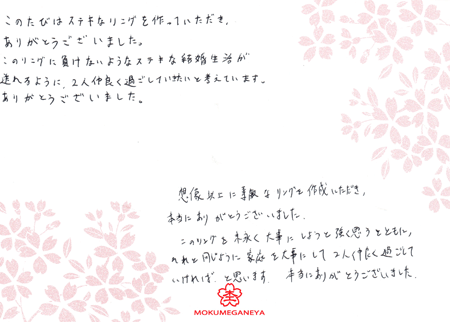 このたびはステキなリングを作っていただき、
ありがとうございました。
このリングに負けないようなステキな結婚生活が
送れるように、2人仲良く過ごしていきたいと考えています。
ありがとうございました。
想像以上に素敵なリングを作成いただき、
本当にありがとうございました。
このリングを末永く大事にしようと強く思うとともに、
それと同じように家庭を大事にして2人仲良く過ごして
いければと思います。本当にありがとうございました。
MOKUMEGANEYA